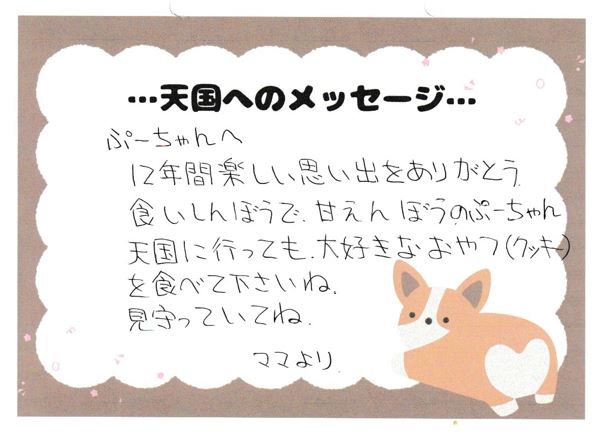 …天国へのメッセージ…
ぷーちゃんへ
12年間楽しい思い出をありがとう.
食いしんぼうで.甘えんぼうのぷーちゃん
天国に行っても.大好きなおやつ(クッキー)
を食べて下さいね.
見守っていてね.
ママより.